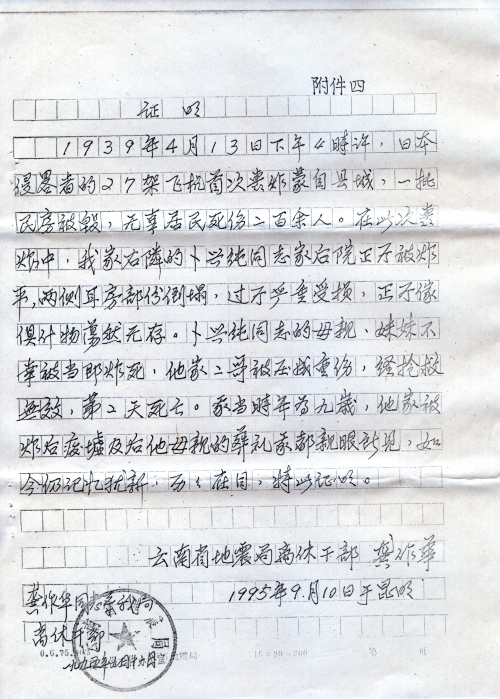 附件四
证明
1939年4月13日下午4時许，日本
侵畧者的27架飞机首次轰炸蒙自县城，一批
民房被毁，无辜居民死伤二百余人。在此次轰
炸中，我家右隣的卜兴纯同志家后院正厅被炸
平，两侧耳房部份倒塌，过厅严重受损，正厅傢
俱什物蕩然无存。卜兴纯同志的母親、妹妹不
幸被当即炸死，他家二哥被压成重伤，经抢救
無效，第2天死亡。我当時年为九歲，他家被
炸后废墟及后他母親的葬礼我都親眼所见，如
今仍记忆犹新，历历在目，特此证明。
云南省地震局离休干部 龚作华
1995年9月10日于昆明
龚作华同志系我局
离休干部
一九九五年
15×20=300
第 页